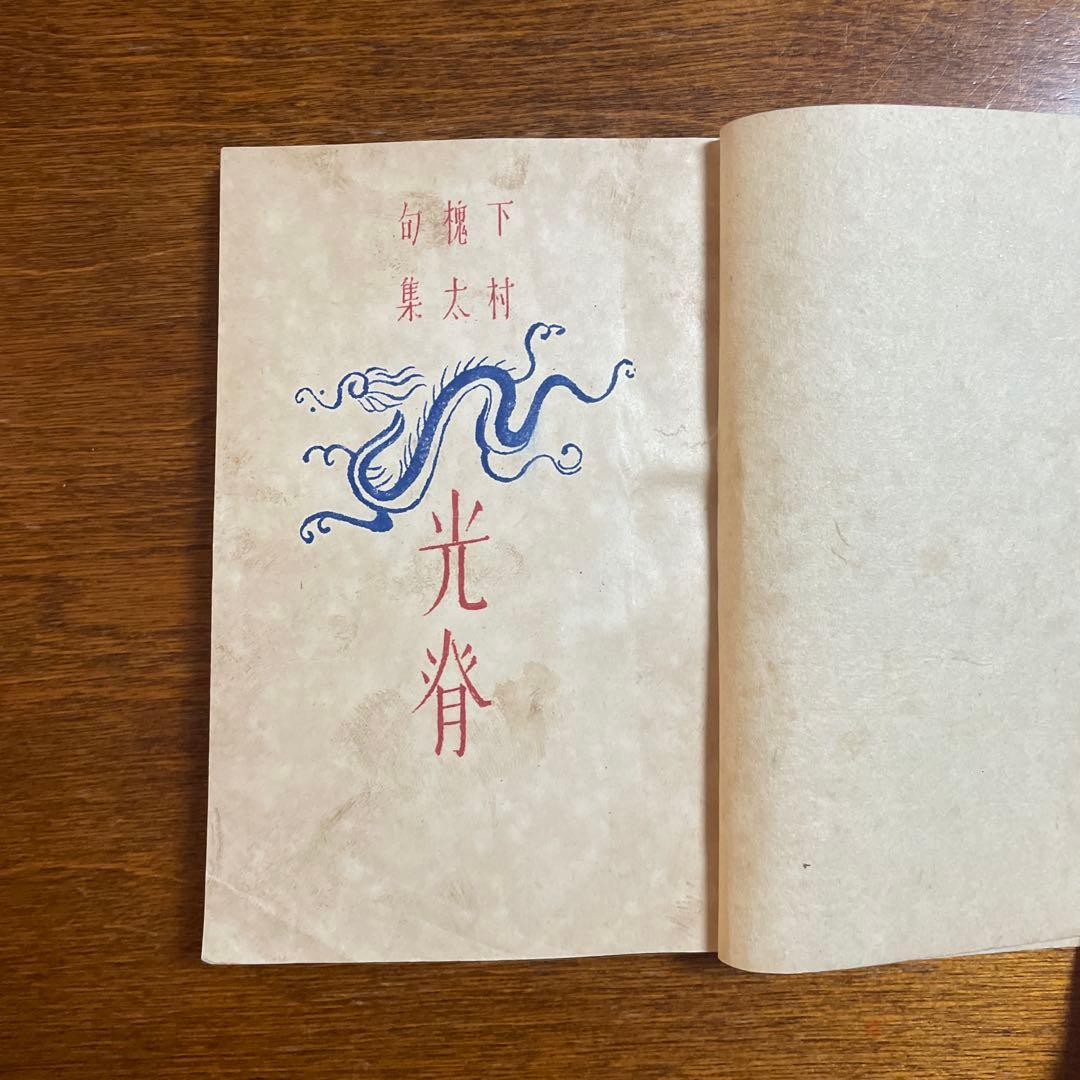 下村
槐太
句集
光背